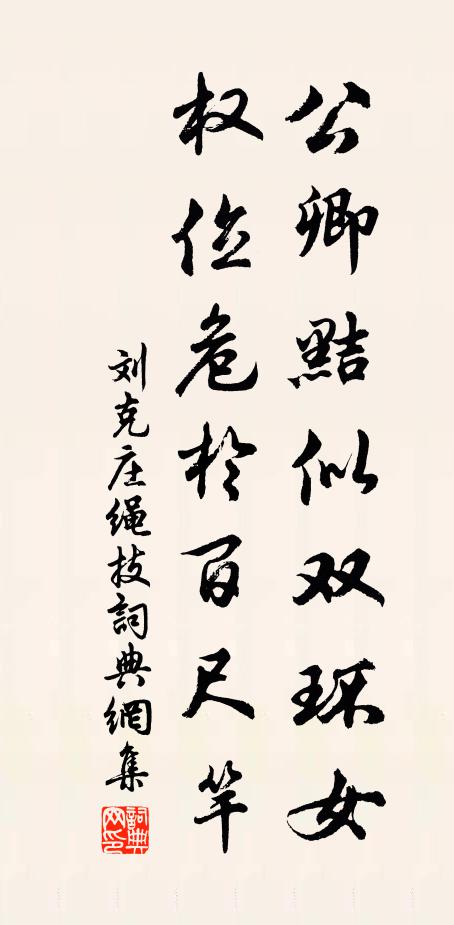 公卿黠似双环女
权位危於百尺竿
刘克庄绳技詞典網集
詞典网印